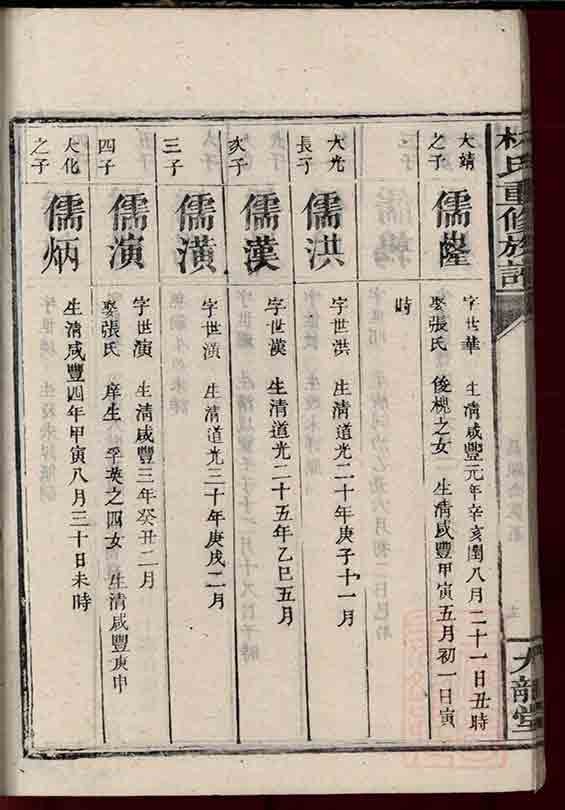 林氏重修族譜
九龍堂
大靖之子
儒隆
字世華 生清咸豐元年辛亥閏八月二十一日丑時
娶張氏 俊槐之女 生清咸豐甲寅五月初一日寅
時
大光長子
儒洪
字世洪 生清道光二十年庚子十一月
次子
儒漢
字世漢 生清道光二十五年乙巳五月
三子
儒潢
字世潢 生清道光三十年庚戌二月
四子
儒演
字世演 生清咸豐三年癸丑二月
娶張氏 庠生 孚英之四女 生清咸豐庚申
大化之子
儒炳
生清咸豐四年甲寅八月三十日未時